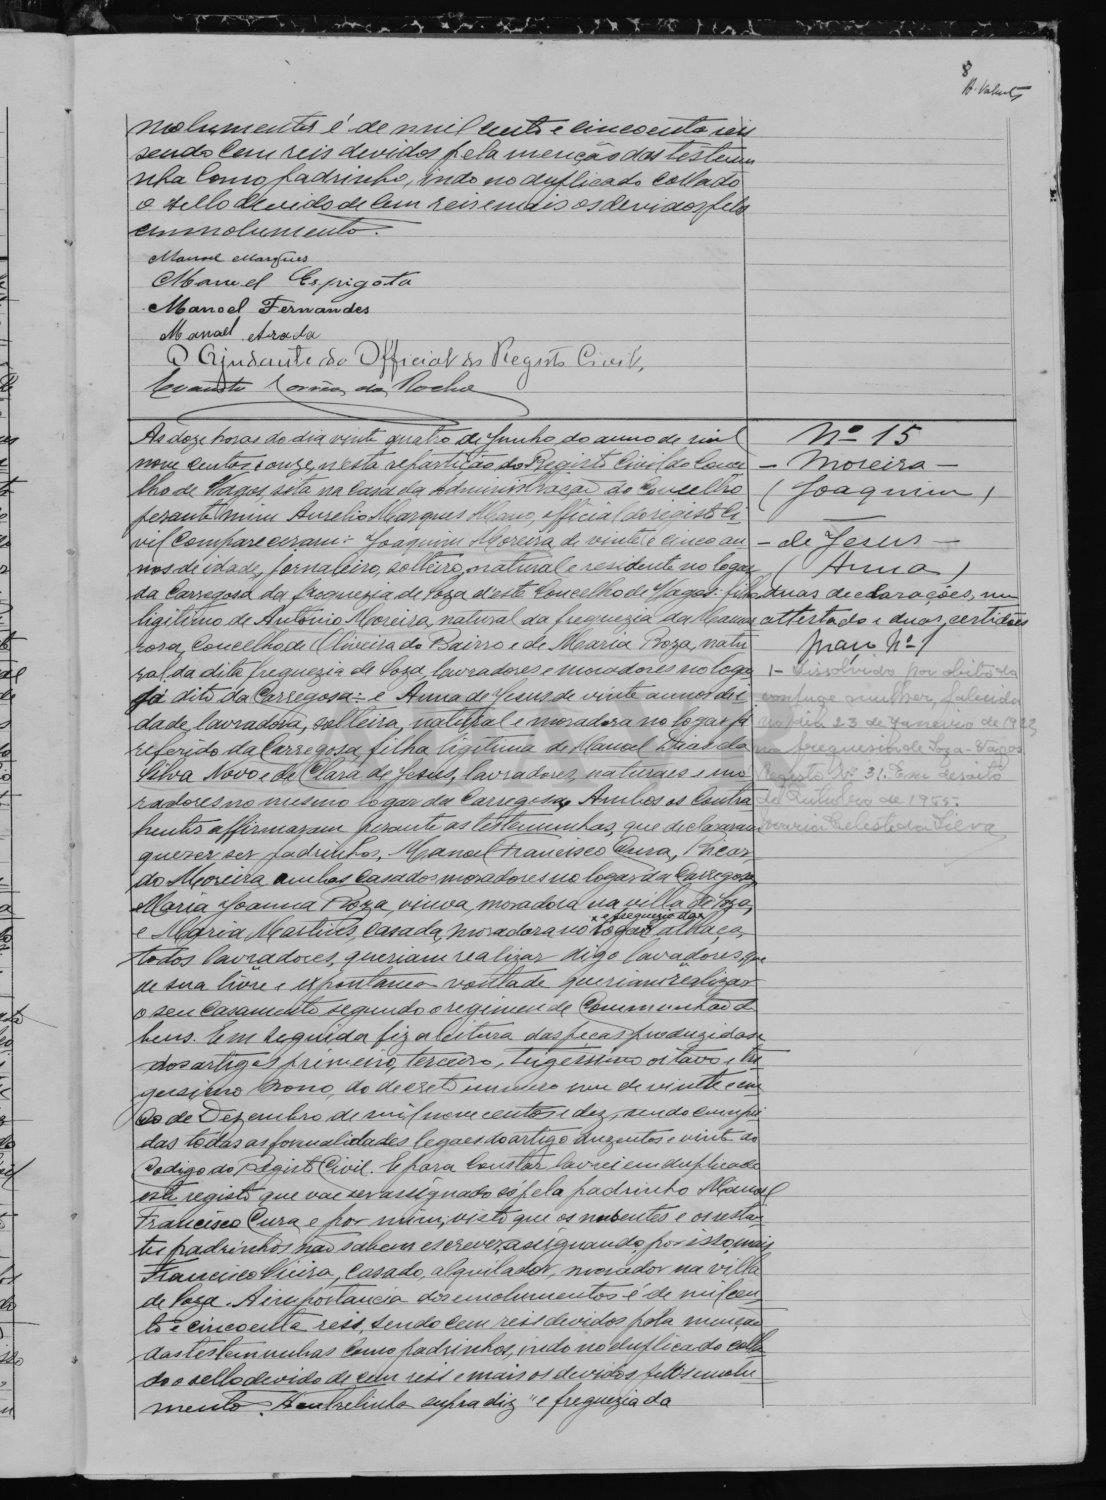 8
molumentos é de mil cento e cincoenta reis
sendo cem reis devidos pela menção das testemu
nha como padrinho, indo no duplicado collado
o sello devido de cem reis e mais os devidos pelo
emmolumento.
Manoel Marques
Manuel Espigota
Manoel Fernandes
Manoel
O Ajudante do Official do Registo Civil,
da Rocha
As doze horas do dia vinte quatro de Junho do anno de mil
nove centos e onze, n'esta repartição do Registo Civil do Conce
lho de Vagos, sita na casa da Administração do Concelho
perante mim Aurelio Marques Mano, official do registo Ci
vil compareceram:- Joaquim Moreira de vinte e cinco an
nos de idade, jornaleiro, solteiro, natural e residente no logar
da Carregosa da freguezia de Soza d'este Concelho de Vagos: filho
ligitimo de Antonio Moreira, natural da freguezia da Mamar
rosa, Concelho de Oliveira do Bairro e de Maria Roza, natu
ral da dita freguezia de Soza, lavradores e moradores no logar
já dito da Carregosa:- e Anna de Jesus de vinte annos de i
dade, lavradora, solteira, natural e moradora no logar já
referido da Carregosa, filha ligitima de Manoel Dias da
Silva Novo e de Clara de Jesus, lavradores, naturaes e mo
radores no mesmo logar da Carregosa. Ambos os contra
hentes affirmaram perante as testemunhas, que declararam
querer ser padrinhos, Manoel Francisco Cura, Ricar
do Moreira ambos casados moradores no logar da Carregosa,
Maria Joanna Roza, viuva, moradora na villa de Soza,
e freguezia da
e Maria Martins, casada, moradora no logar
todos lavradores, queriam realizar digo lavradores que
de sua livre e expontanea vontade queriam realizar
o seu casamento segundo o regimen de Communhão de
bens. Em seguida fiz a leitura das peças produzidas e
dos artigos primeiro, terceiro, trigessimo oitavo e tri
gessimo nono, do decreto numero um de vinte e cin
co de Dezembro de mil nove centos e dez, sendo cumpri
das todas as formalidades legaes do artigo duzentos e vinte do
Codigo do Registo Civil. E para constar lavrei em duplicado
este registo que vae ser assignado só pela padrinho Manoel
Francisco Cura e por mim, visto que os nubentes e os restan
tes padrinhos não sabem escrever, assignando, por isso, mais
Francisco Vieira, casado, alquilador, morador na villa
de Soza. A importancia dos emolumentos é de mil cen
to e cincoenta reis, sendo cem reis devidos pela menção
das testemunhas como padrinhos, indo no duplicado colla
do o sello devido de cem reis e mais os devidos pelos emolu
mento. A entrelinha supra diz "e freguezia da
Nº 15
- Moreira -
(Joaquim)
- de Jesus -
(Anna)
duas declarações, um
attestado e duas certidões
maço Nº 1
1- Dissolvido por obito da
conjuge mulher, falecida
no dia 23 de Janeiro de
na freguesia de Soza-Vagos
Registo Nº 31. Em dezoito
de Outubro de
Maria Celeste da Silva